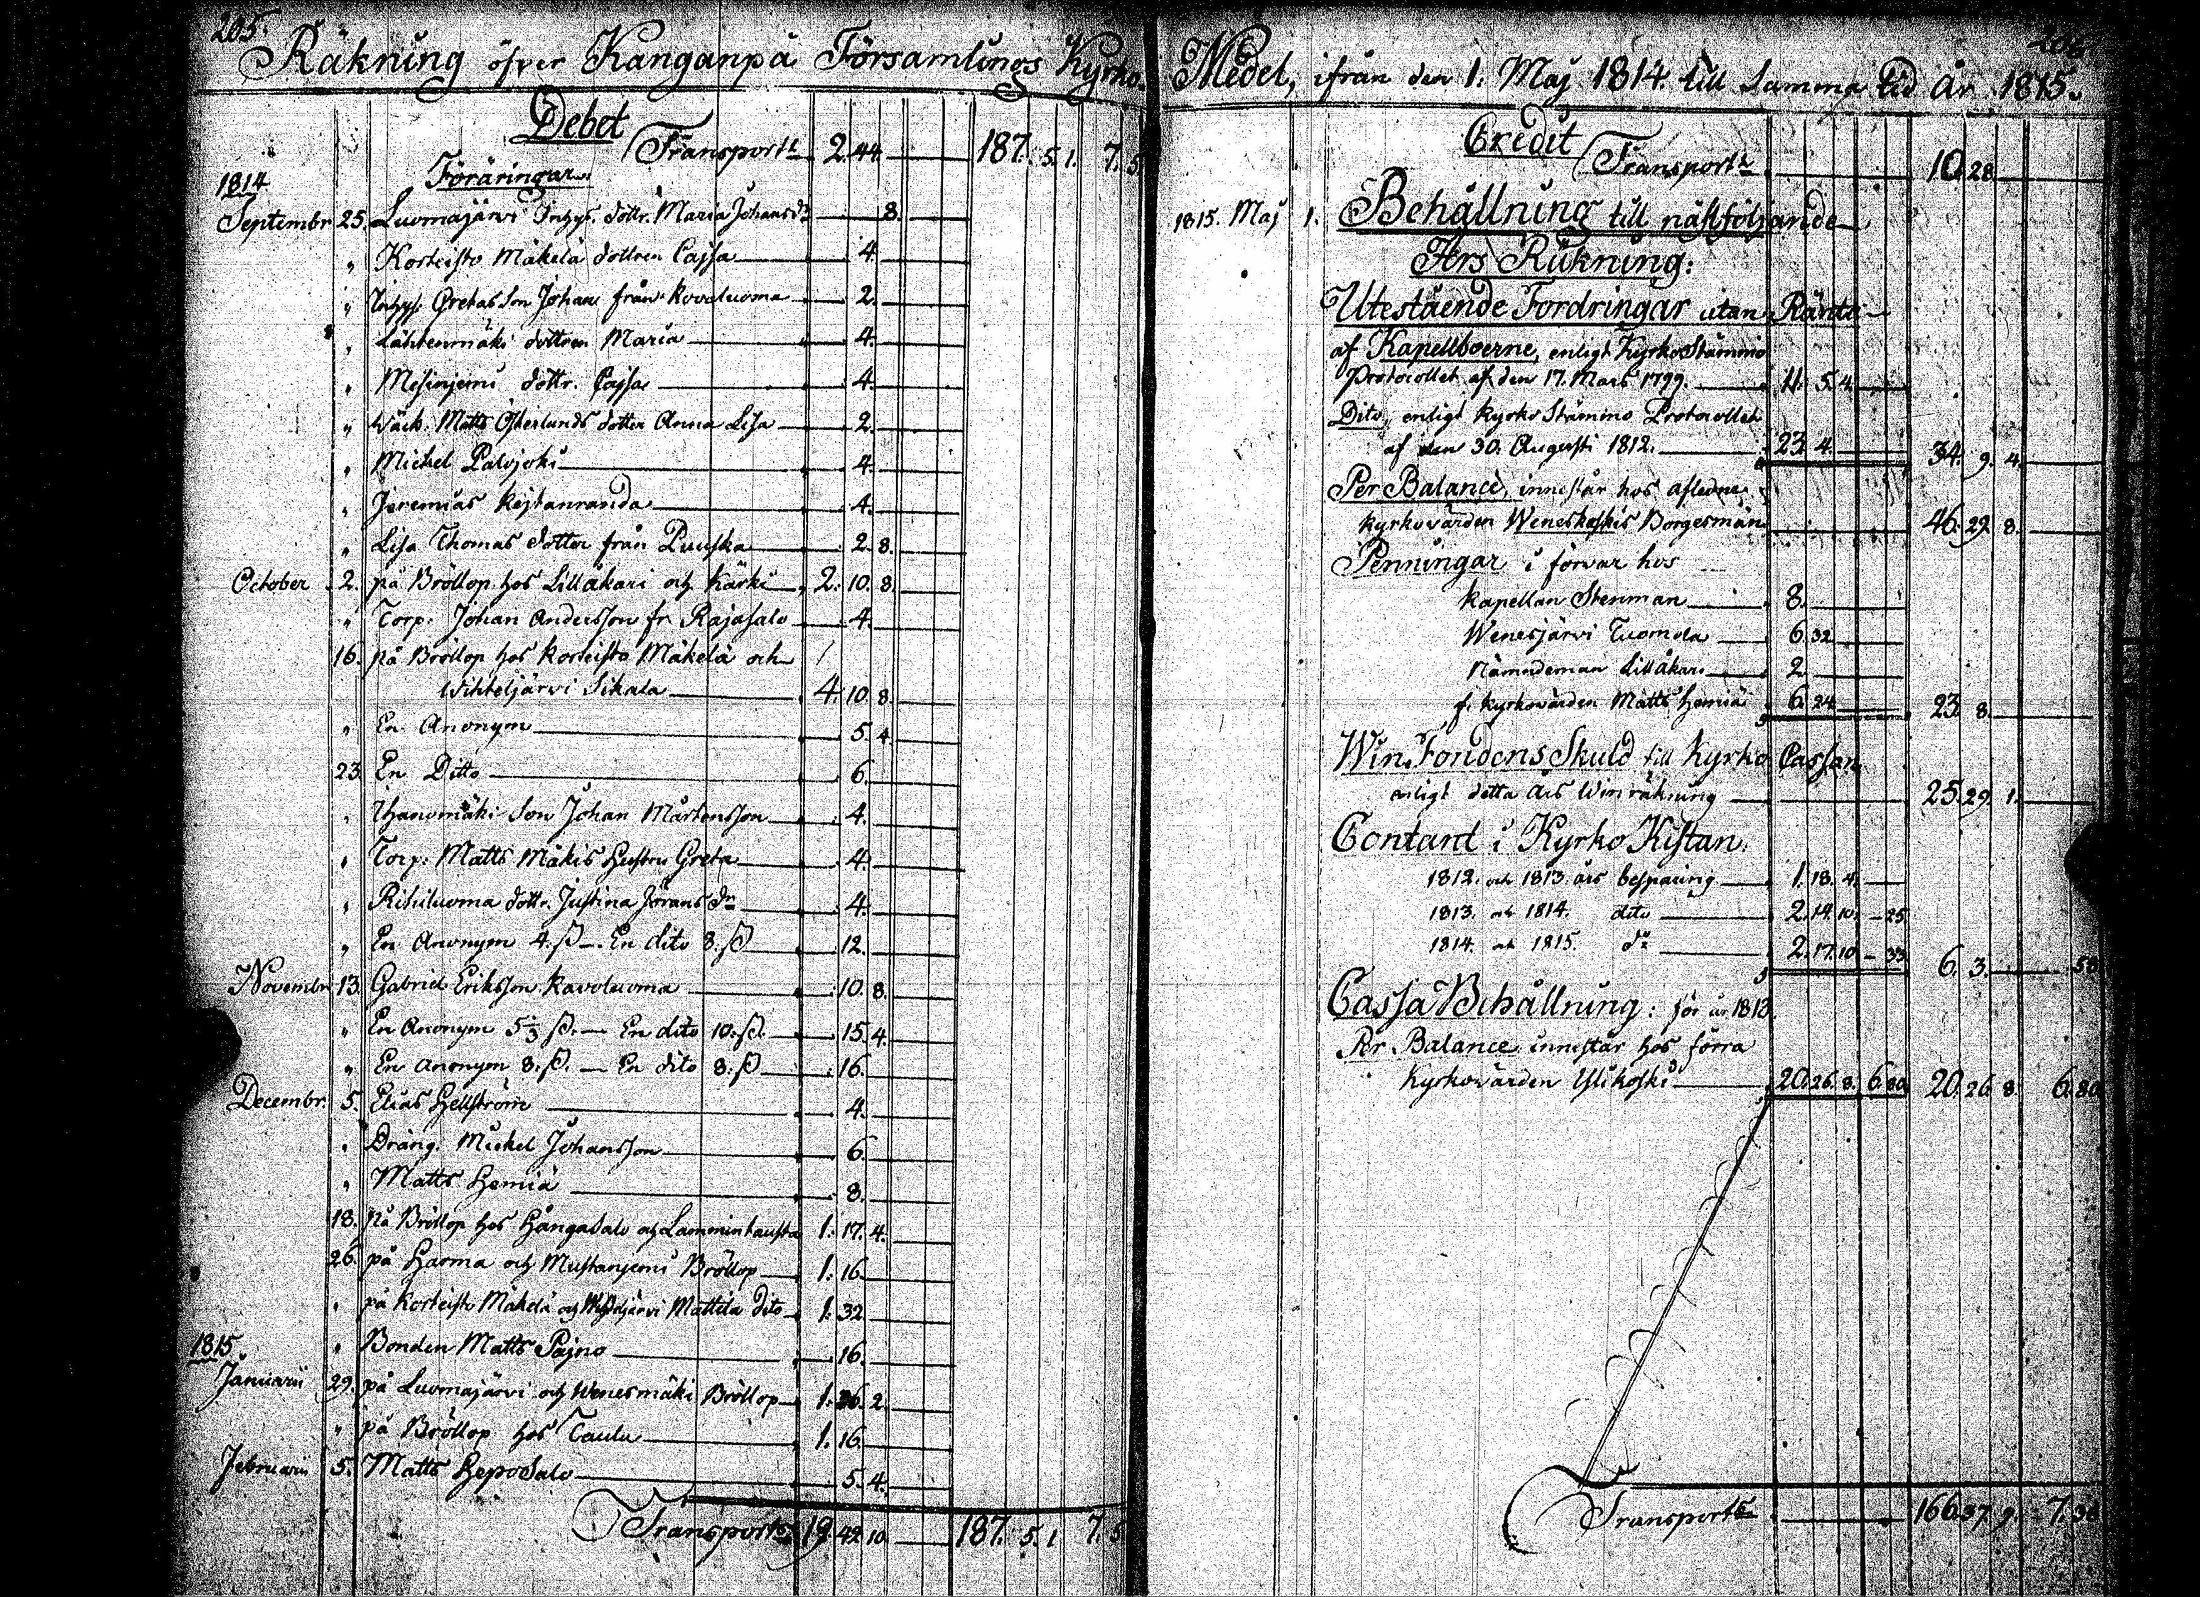 205.
Räkning öfver Kanganpä Församlings Kyrko-
Debet
Transport 2. 44. 187. 5. 1. 7. 5
1814 Föräringar.
Septembr 25. Luomajärvi Inhys. dottr. Maria Johansdr 8.
" Korteisto Mäkelä dottren Cajsa 4.
" Inhys. Gretas Son Johan från Kovoluoma 2.
" Lähtenmäki dottren Maria 4.
" Mesinjemi dottr. Cajsa 4.
" Matts Österlunds dotter Anna Lisa 2.
" Michel Palojoki 4.
" Jeremias Kejtanranda 4.
" Lisa Thomas dotter från Puuska 2. 8.
October 2. på Bröllop hos Lillakari och Kärki 2. 10. 8.
" Torp. Johan Andersson fr. Rajasalo 4.
16. på Bröllop hos Korteisto Mäkelä och
Wihteljärvi Sikala 4. 10. 8.
" En Anonym 5. 4.
23. En Ditto 6.
" Son Johan Mårtensson 4.
" Torp. Matts Mäkis Hustru Greta 4.
" Rihiluoma dottr. Justina Jörans dr 4.
" En Anonym 4. ß. En dito 8. ß 12.
Novembr 13. Gabriel Eriksson Kavoluoma 10. 8.
" En Anonym 5⅓ ß. — En dito 10. ß. 15. 4.
" En Anonym 8. ß. — En dito 8. ß 16.
Decembr. 5. Elias Hellström 4.
" Dräng. Mickel Johansson 6.
" Matts Hemiä 8.
18. på Bröllop hos Hångasalo och Lamminhausta 1. 17. 4.
26. på Harma och Mustanjemi Bröllop 1. 16.
" på Korteisto Mäkelä och Mattila dito 1. 32
1815. " Bonden Matts Pajno 16.
Januarii 29. på Luomajärvi och Wenesmäki Bröllop 1. 26. 2.
" på Bröllop hos Taulu 1. 16.
Februarii 5. Matts Heposalo 5. 4.
Transport 19. 42. 10. 187. 5. 1 7. 5
206
Medel, ifrån den 1. Maj 1814. till Samma tid År 1815.
Credit
Transport 10. 28
1815. Maj 1. Behållning till nästföljande
Års Räkning:
Utestående Fordringar utan Ränta
af Kapellboerne, enligt Kyrko Stämmo
Protocollet af den 17. Mars 1799. 11. 5. 4.
Dito, enligt Kyrko Stämmo Protocollet
af den 30. Augusti 1812. 23. 4. 34. 9. 4.
Per Balance, innestår hos afledne
Kyrkovärden Weneskoskis Borgesmän 46. 29. 8.
Penningar i förvar hos
Kapellan Stenman 8.
Wenesjärvi Tuomola 6. 32
Nämndeman Lillåkari 2
f. Kyrkovärden Matts Hemiä 6. 24 23. 8.
Win Fondens Skuld till Kyrko Cassan
enligt detta års Winräkning 25. 29. 1.
Contant i Kyrko Kistan.
1812. och 1813. års besparing 1. 18. 4.
1813. och 1814. dito 2. 14. 10. — 25
1814. och 1815. do 2. 17. 10 — 33 6. 3. 58
Cassa Behållning: för år 1813
Per Balance innestår hos förra
Kyrkovärden Ylikoski 20. 26. 8. 6. 80 20. 26. 8. 6. 80
Transport 166. 37. 9. 7. 38